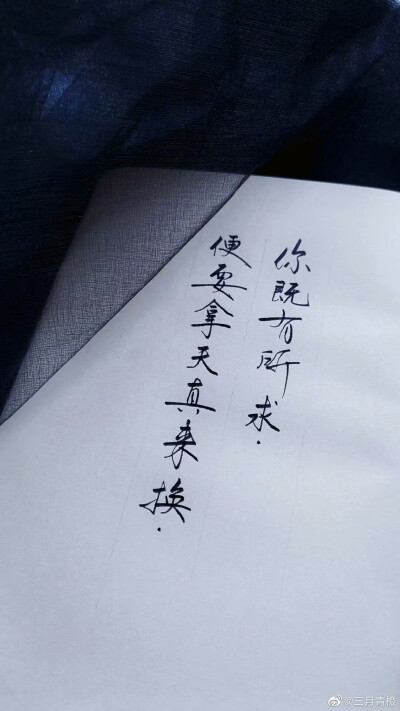 你既有所求.
便要拿天真来换.
@三月青橙